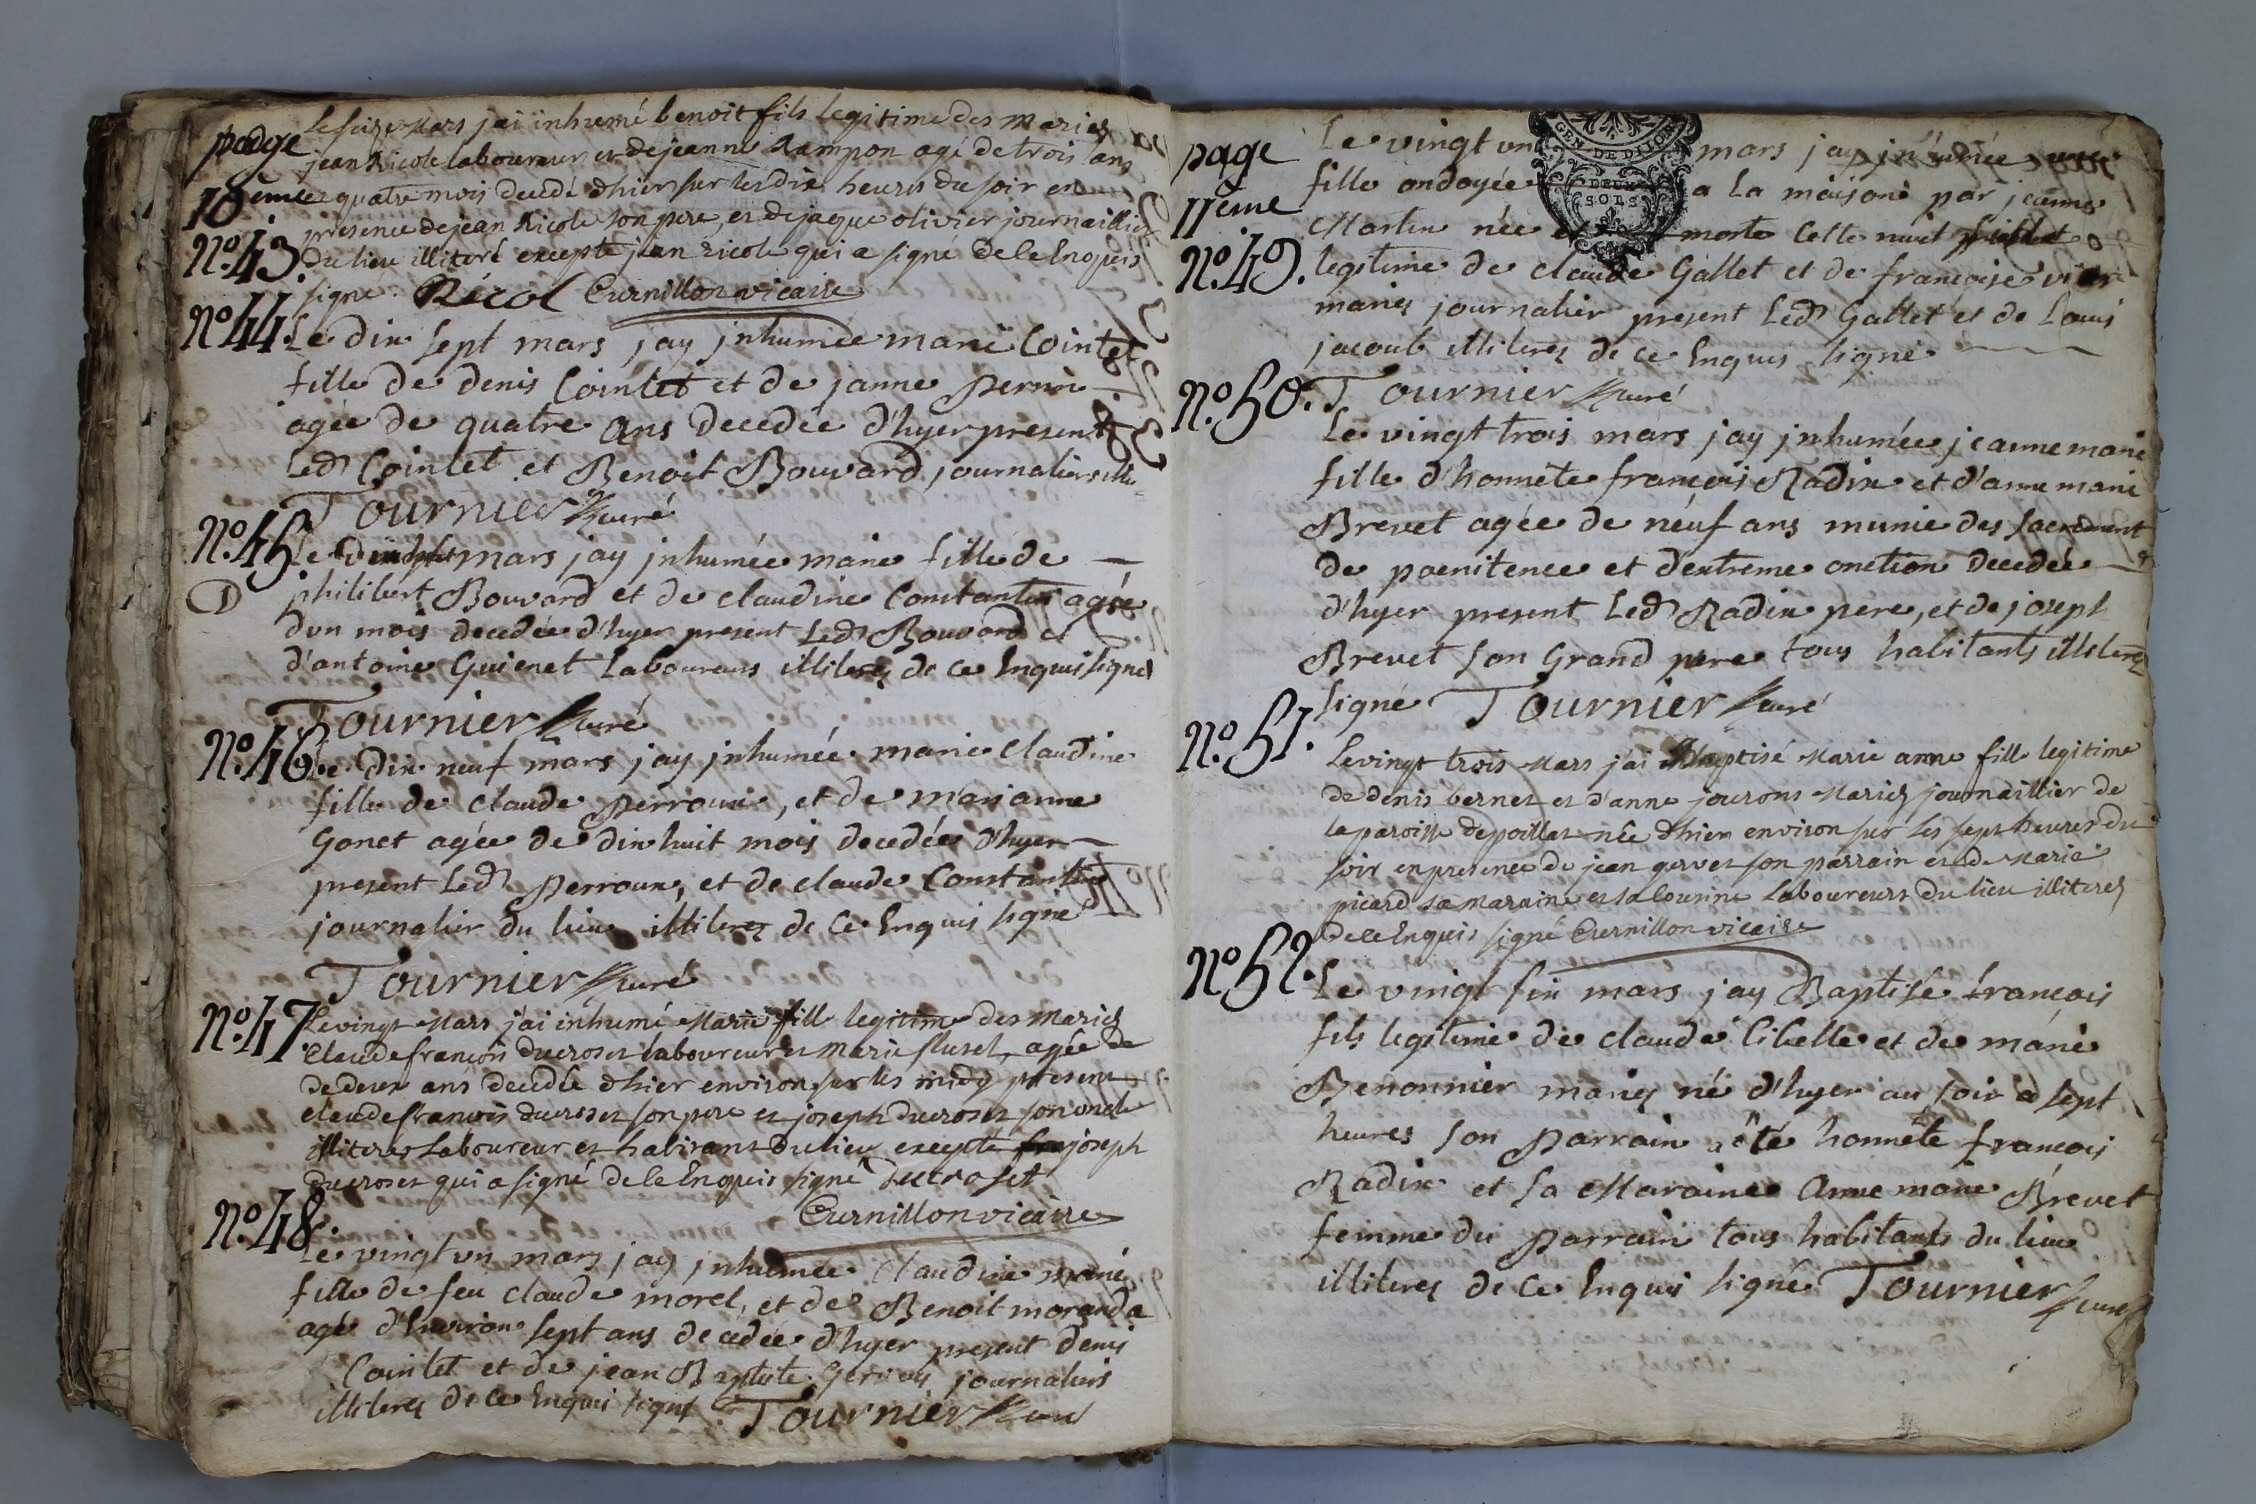 page
10ème
Le seize mars j'ai inhumé benoit fils legitime des mariés
jean Ricole laboureur et de jeanne Rampon agé de trois ans
quatre mois decedé d'hier sur les dix heures du soir en
presence de jean Ricole son pere, et de jaque olivier journaillier
No. 43.
du lieu illiteré excepté jean ricole qui a signé de ce Enquis
signé Ricol Curnillon vicaire
No. 44.
Le dix sept mars jay jnhumée marie Cointet
fille de denis Cointet et de janne perrin
agée de quatre ans decedée d'hyer present
Led Cointet et Benoit Bouvard journaliers ille=
Tournier Curé
No. 45
Le mars jay jnhumée marie fille de —
D
philibert Bouvard et de claudine Constantin agée
dun mois decedée d'hyer present Led Bouvard et
d'antoine Guienet Laboureurs illiterez de ce Enquis signés
Tournier Curé
No. 46.
Le dix neuf mars jay jnhumée marie claudine
fille de claude perroux, et de marianne
Gonet agée de dix huit mois decedée d'hyer —
present Led perroux, et de claude Constantin
journalier du lieu illiterez de ce Enquis signé
Tournier Curé
No. 47.
Le vingt mars j'ai inhumé marie fille legitime des mariés
claude francois ducroset laboureur et marie flusel, agée de
de deux ans decedée d'hier environ sur les midy present
claude francois ducroset son pere et joseph ducroset son oncle
illiterés Laboureur et habitant du lieu excepté joseph
ducroset qui a signé de ce Enquis signé Ducroset
Curnillon vicaire
No. 48.
Le vingt un mars jay jnhumée claudine marie
fille de feu claude morel, et de Benoit moranda
agé d'Environ sept ans decedée d'hyer present denis
Cointet et de jean Baptiste journaliers
illiterez de ce Enquis signé Tournier Curé
page
11ème
Le vingt un mars jay jnhumée une
fille ondoyée a la maison par jeanne
Martin née et morte cette nuit
No. 49.
legitime de claude Gallet et de francoise
mariez journalier present Led Gallet et de Louis
jacoub illiterez de ce Enquis signé
No. 50.
Tournier Curé
Le vingt trois mars jay jnhumée jeanne marie
fille d'honnête françois Radix et d'anne marie
Brevet agée de neuf ans munie des sacrement
de poenitence et d'extreme onction decedée —
d'hyer present Led Radix pere, et de joseph
Brevet son Grand pere tous habitants illiterez
signé Tournier Curé
No. 51.
Le vingt trois mars j'ai Baptisé marie anne fille legitime
de denis bernet et d'anne jourons mariez journaillier de
la paroisse de poillat née d'hier environ sur les sept heures du
soir en presence de jean gervet son parrain et de marie
picard sa maraine et sa cousine Laboureurs du lieu illiterez
de ce Enquis signé Curnillon vicaire
No. 52.
Le vingt six mars jay Baptisé françois
fils legitime de claude Cibelle et de marie
Benonnier mariez né d'hyer au soir a sept
heures son parrain a été honnête francois
Radix et sa Maraine anne marie Brevet
femme du parrain tous habitants du lieu
illiterez de ce Enquis signé Tournier Curé
GEN. DE DIJON
DEUX
SOLS